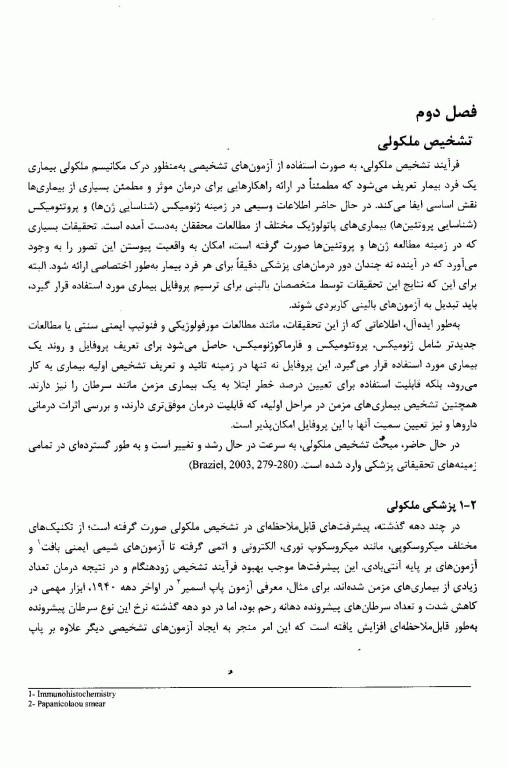 فصل دوم
تشخیص ملکولی
فرآیند تشخیص ملکولی، به صورت استفاده از آزمون‌های تشخیصی به‌منظور درک مکانیسم ملکولی بیماری
یک فرد بیمار تعریف می‌شود که مطمئناً در ارائه راهکارهایی برای درمان موثر و مطمئن بسیاری از بیماری‌ها
نقش اساسی ایفا می‌کند. در حال حاضر اطلاعات وسیعی در زمینه ژنومیکس (شناسایی ژن‌ها) و پروتئومیکس
(شناسایی پروتئین‌ها) بیماری‌های پاتولوژیک مختلف از مطالعات محققان به‌دست آمده است. تحقیقات بسیاری
که در زمینه مطالعه ژن‌ها و پروتئین‌ها صورت گرفته است، امکان به واقعیت پیوستن این تصور را به وجود
می‌آورد که در آینده نه چندان دور درمان‌های پزشکی دقیقاً برای هر فرد بیمار به‌طور اختصاصی ارائه شود. البته
برای این که نتایج این تحقیقات توسط متخصصان بالینی برای ترسیم پروفایل بیماری مورد استفاده قرار گیرد،
باید تبدیل به آزمون‌های بالینی کاربردی شوند.
به‌طور ایده‌آل، اطلاعاتی که از این تحقیقات، مانند مطالعات مورفولوژیکی و فنوتیپ ایمنی سنتی یا مطالعات
جدیدتر شامل ژنومیکس، پروتئومیکس و فارماکوژنومیکس، حاصل می‌شود برای تعریف پروفایل و روند یک
بیماری مورد استفاده قرار می‌گیرد. این پروفایل نه تنها در زمینه تائید و تعریف تشخیص اولیه بیماری به کار
می‌رود، بلکه قابلیت استفاده برای تعیین درصد خطر ابتلا به یک بیماری مزمن مانند سرطان را نیز دارند.
همچنین تشخیص بیماری‌های مزمن در مراحل اولیه، که قابلیت درمان موفق‌تری دارند، و بررسی اثرات درمانی
داروها و نیز تعیین سمیت آنها با این پروفایل امکان‌پذیر است.
در حال حاضر، مبحث تشخیص ملکولی، به سرعت در حال رشد و تغییر است و به طور گسترده‌ای در تمامی
زمینه‌های تحقیقاتی پزشکی وارد شده است. (Braziel, 2003, 279-280)
۲-۱ پزشکی ملکولی
در چند دهه گذشته، پیشرفت‌های قابل‌ملاحظه‌ای در تشخیص ملکولی صورت گرفته است؛ از تکنیک‌های
مختلف میکروسکوپی، مانند میکروسکوپ نوری، الکترونی و اتمی گرفته تا آزمون‌های شیمی ایمنی بافت۱ و
آزمون‌های بر پایه آنتی‌بادی. این پیشرفت‌ها موجب بهبود فرآیند تشخیص زودهنگام و در نتیجه درمان تعداد
زیادی از بیماری‌های مزمن شده‌اند. برای مثال، معرفی آزمون پاپ اسمیر۲ در اواخر دهه ۱۹۴۰، ابزار مهمی در
کاهش شدت و تعداد سرطان‌های پیشرونده دهانه رحم بود، اما در دو دهه گذشته نرخ این نوع سرطان پیشرونده
به‌طور قابل‌ملاحظه‌ای افزایش یافته است که این امر منجر به ایجاد آزمون‌های تشخیصی دیگر علاوه بر پاپ
1- Immunohistochemistry
2- Papanicolaou smear